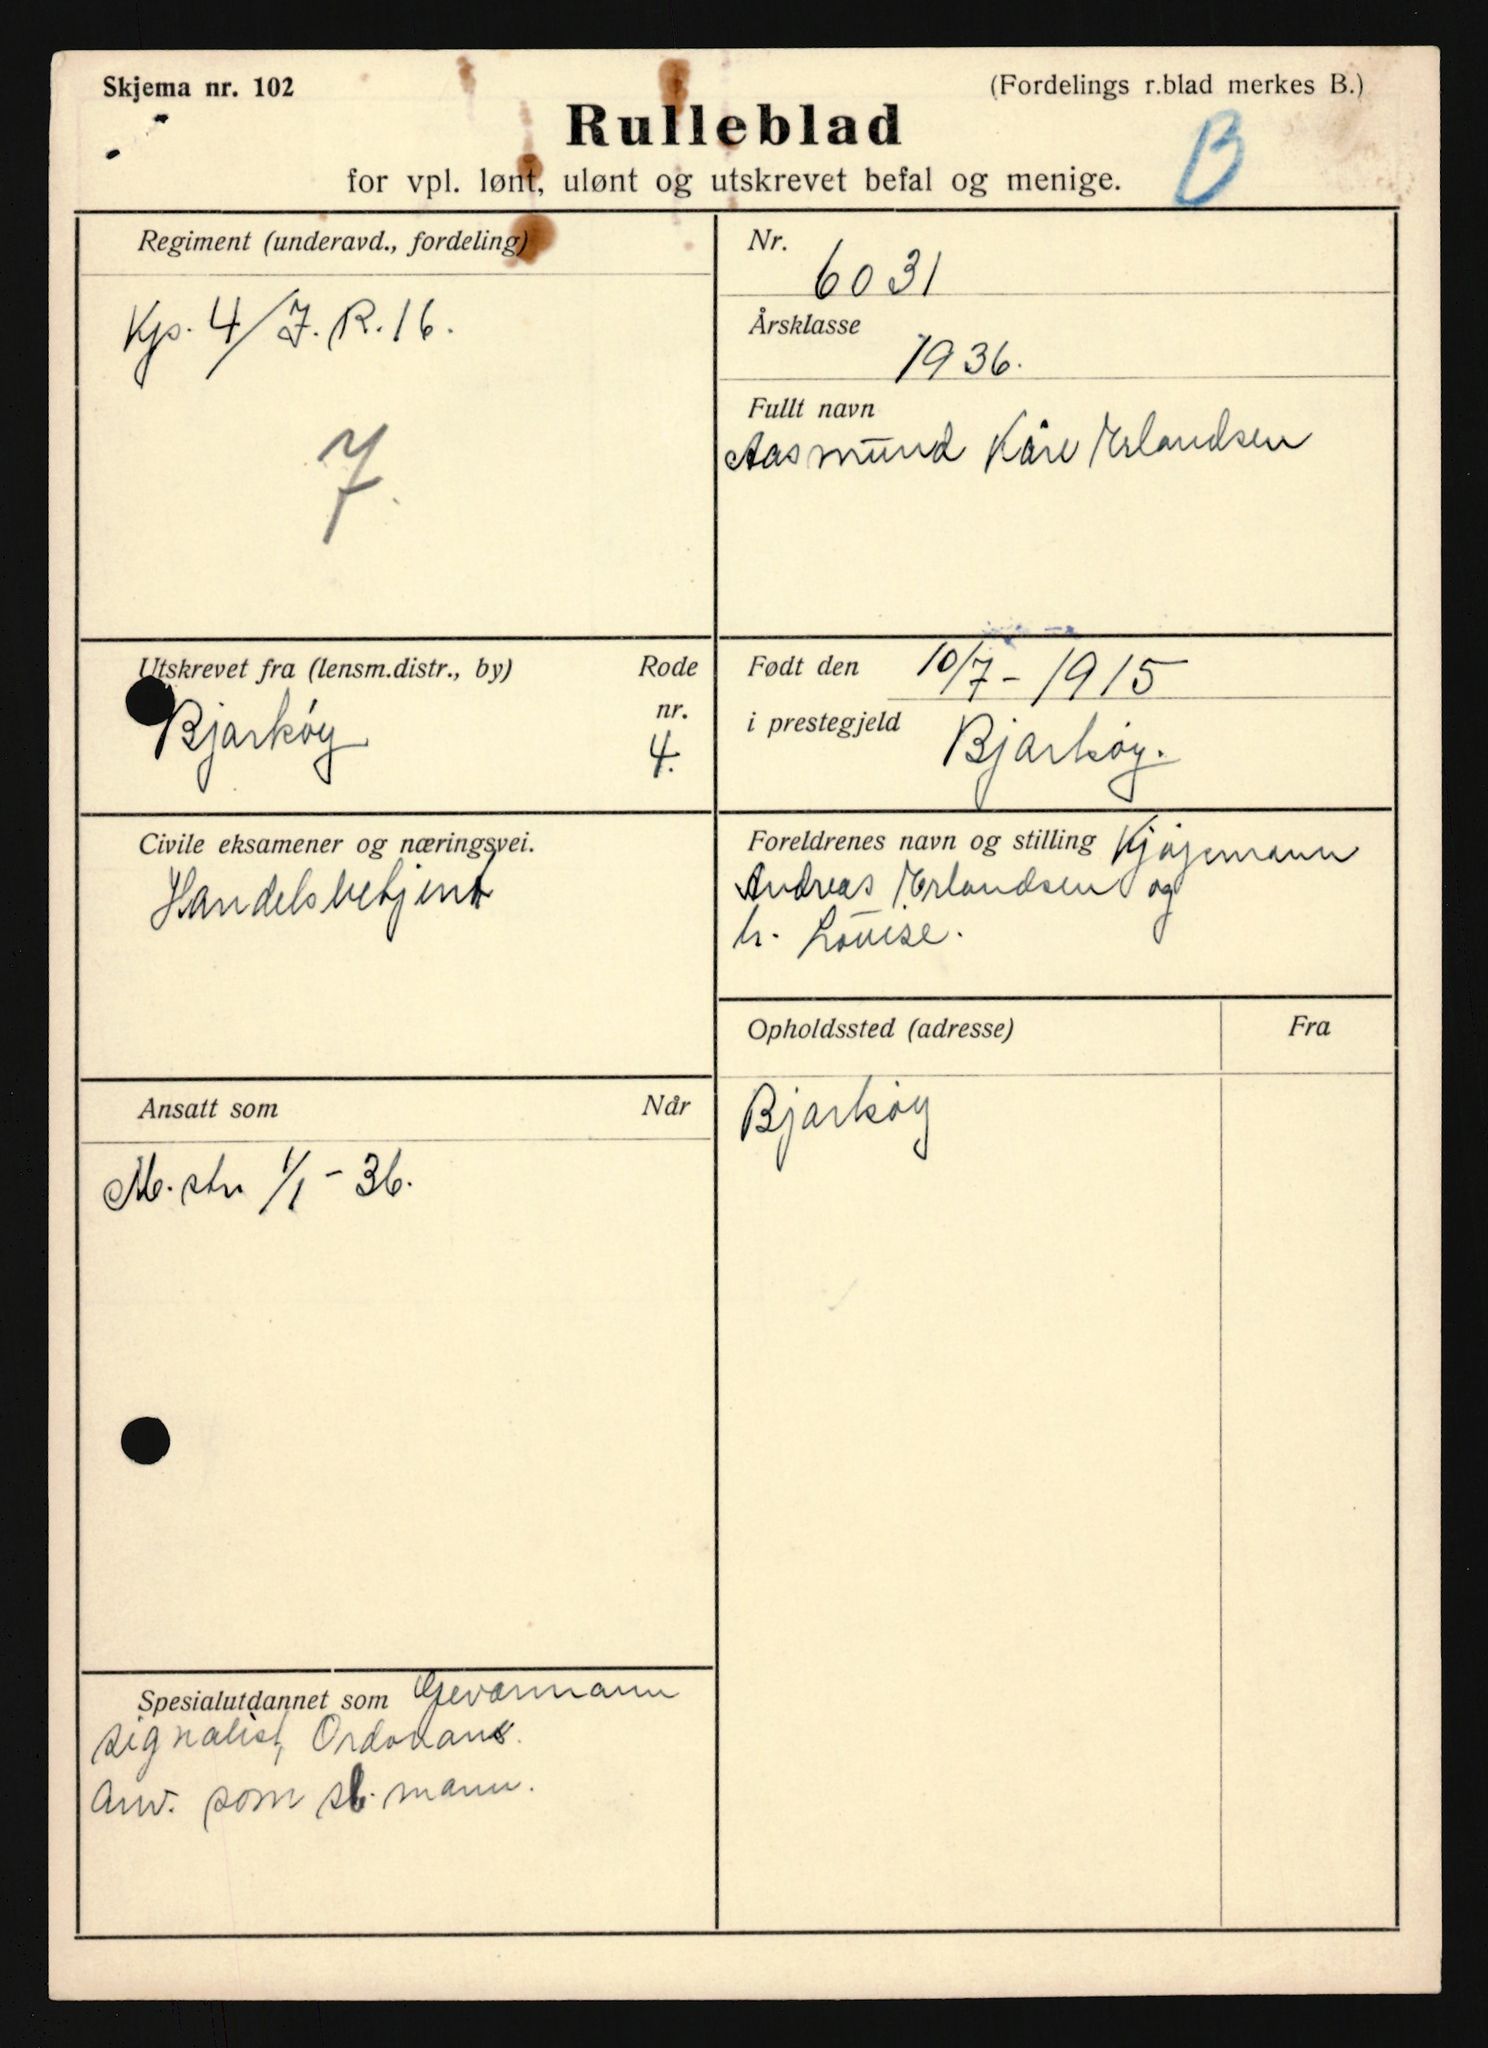 Skjema nr. 102
(Fordelings r.blad merkes B.)
Rulleblad
B
for vpl. lønt, ulønt og utskrevet befal og menige.
Regiment (underavd., fordeling)
Kp. 4/I.R.16.
7.
Nr.
6031
Årsklasse
1936.
Fullt navn
Aasmund Kåre Erlandsen
Utskrevet fra (lensm.distr., by)
Rode
nr.
Bjarkøy
4.
Født den 10/7 - 1915
i prestegjeld Bjarkøy.
Civile eksamener og næringsvei.
Handelsbetjent
Foreldrenes navn og stilling
Andreas Erlandsen og
h. Louise.
Ansatt som
Når
M.str. 1/1 - 36.
Opholdssted (adresse)
Fra
Bjarkøy
Spesialutdannet som Geværmann
signalist, Ordonans.
Anv. som st. mann.